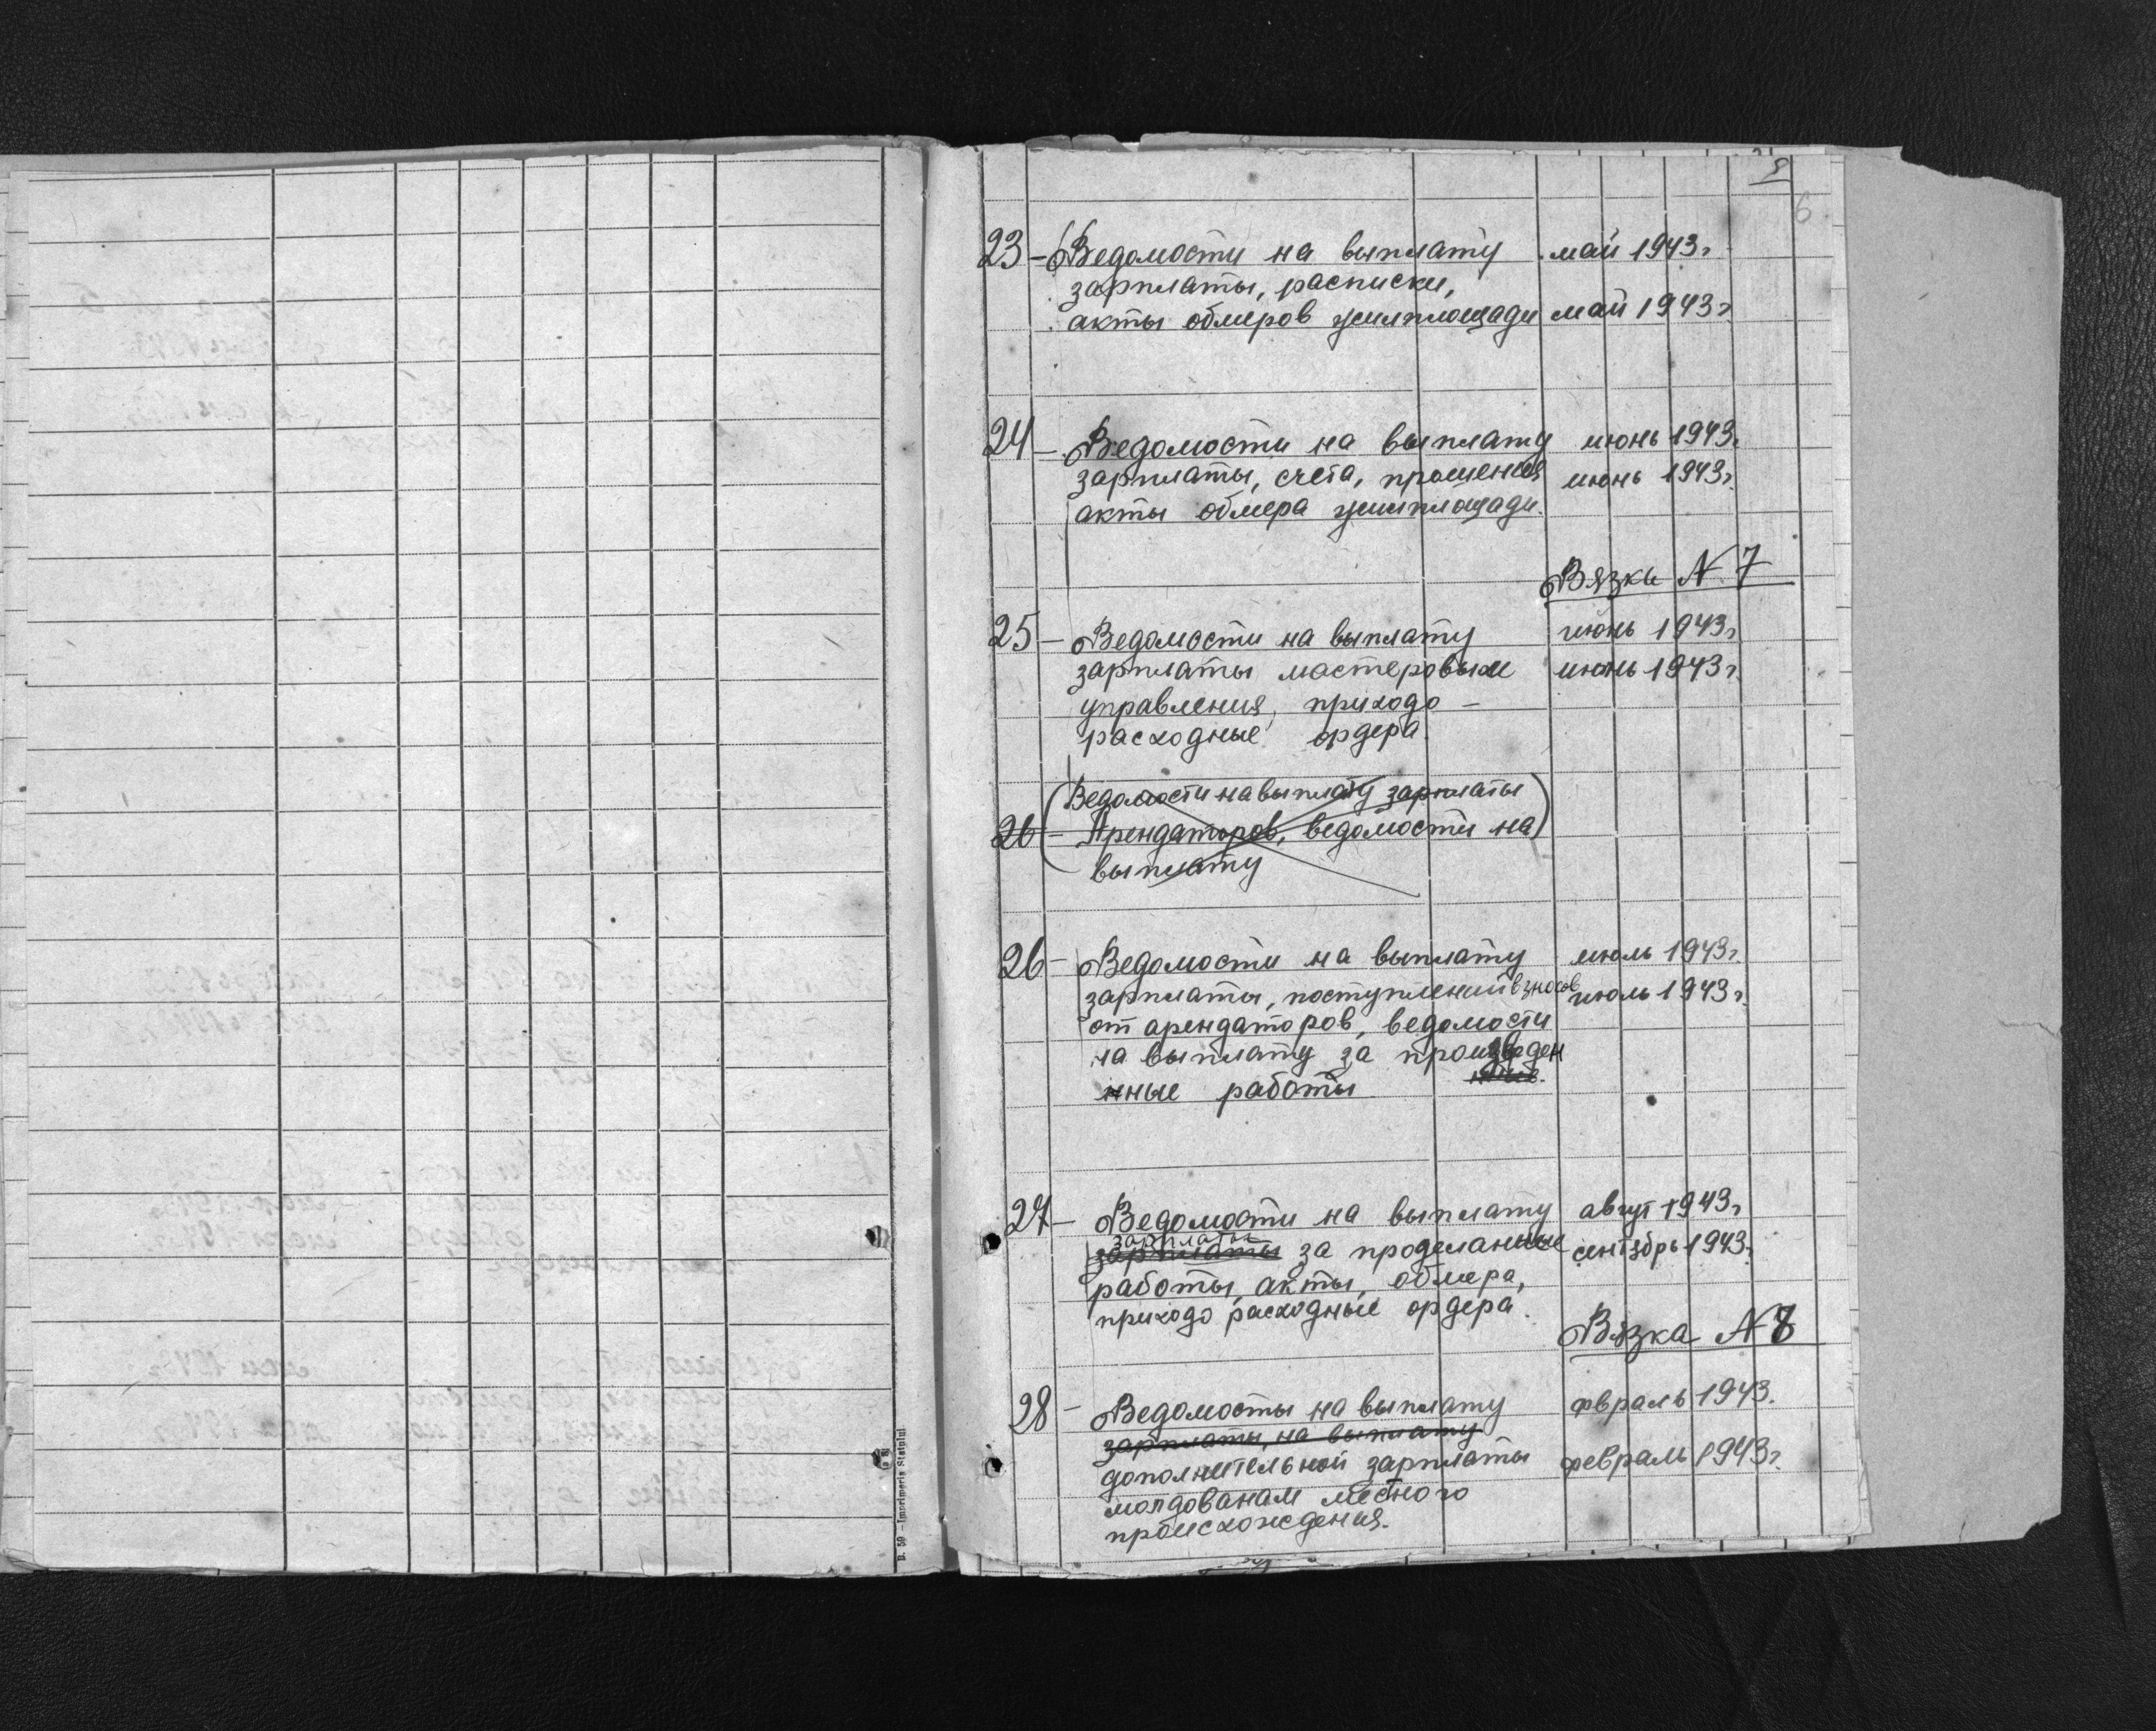 5
6
23 - Ведомости на выплату май 1943 г
зарплаты, расписки,
акты обмеров жилплощади май 1943 г
24 - Ведомости на выплату июнь 1943 г.
зарплаты, счета, прошения июнь 1943 г.
акты обмера жилплощади.
Вязка N 7
25 - Ведомости на выплату июнь 1943 г
зарплаты мастеровым июнь 1943 г.
управления, приходо -
расходные ордера.
Ведомости на выплату зарплаты
26 - Арендаторов, ведомости на
выплату
26 - Ведомости на выплату июль 1943 г.
зарплаты, поступлений взносов июль 1943 г.
от арендаторов, ведомости
на выплату за произведен
нные работы
27 - Ведомости на выплату авгут 1943 г
зарплаты
зарплаты за проделанные сентябрь 1943 г.
работы, акты, обмера,
приходо расходные ордера.
Вязка N 8
28 - Ведомосты на выплату февраль 1943.
зарплаты, на выплату
дополнительной зарплаты февраль 1943 г.
молдованам местного
происхождения.
B. 59 - Imprimeria Statului